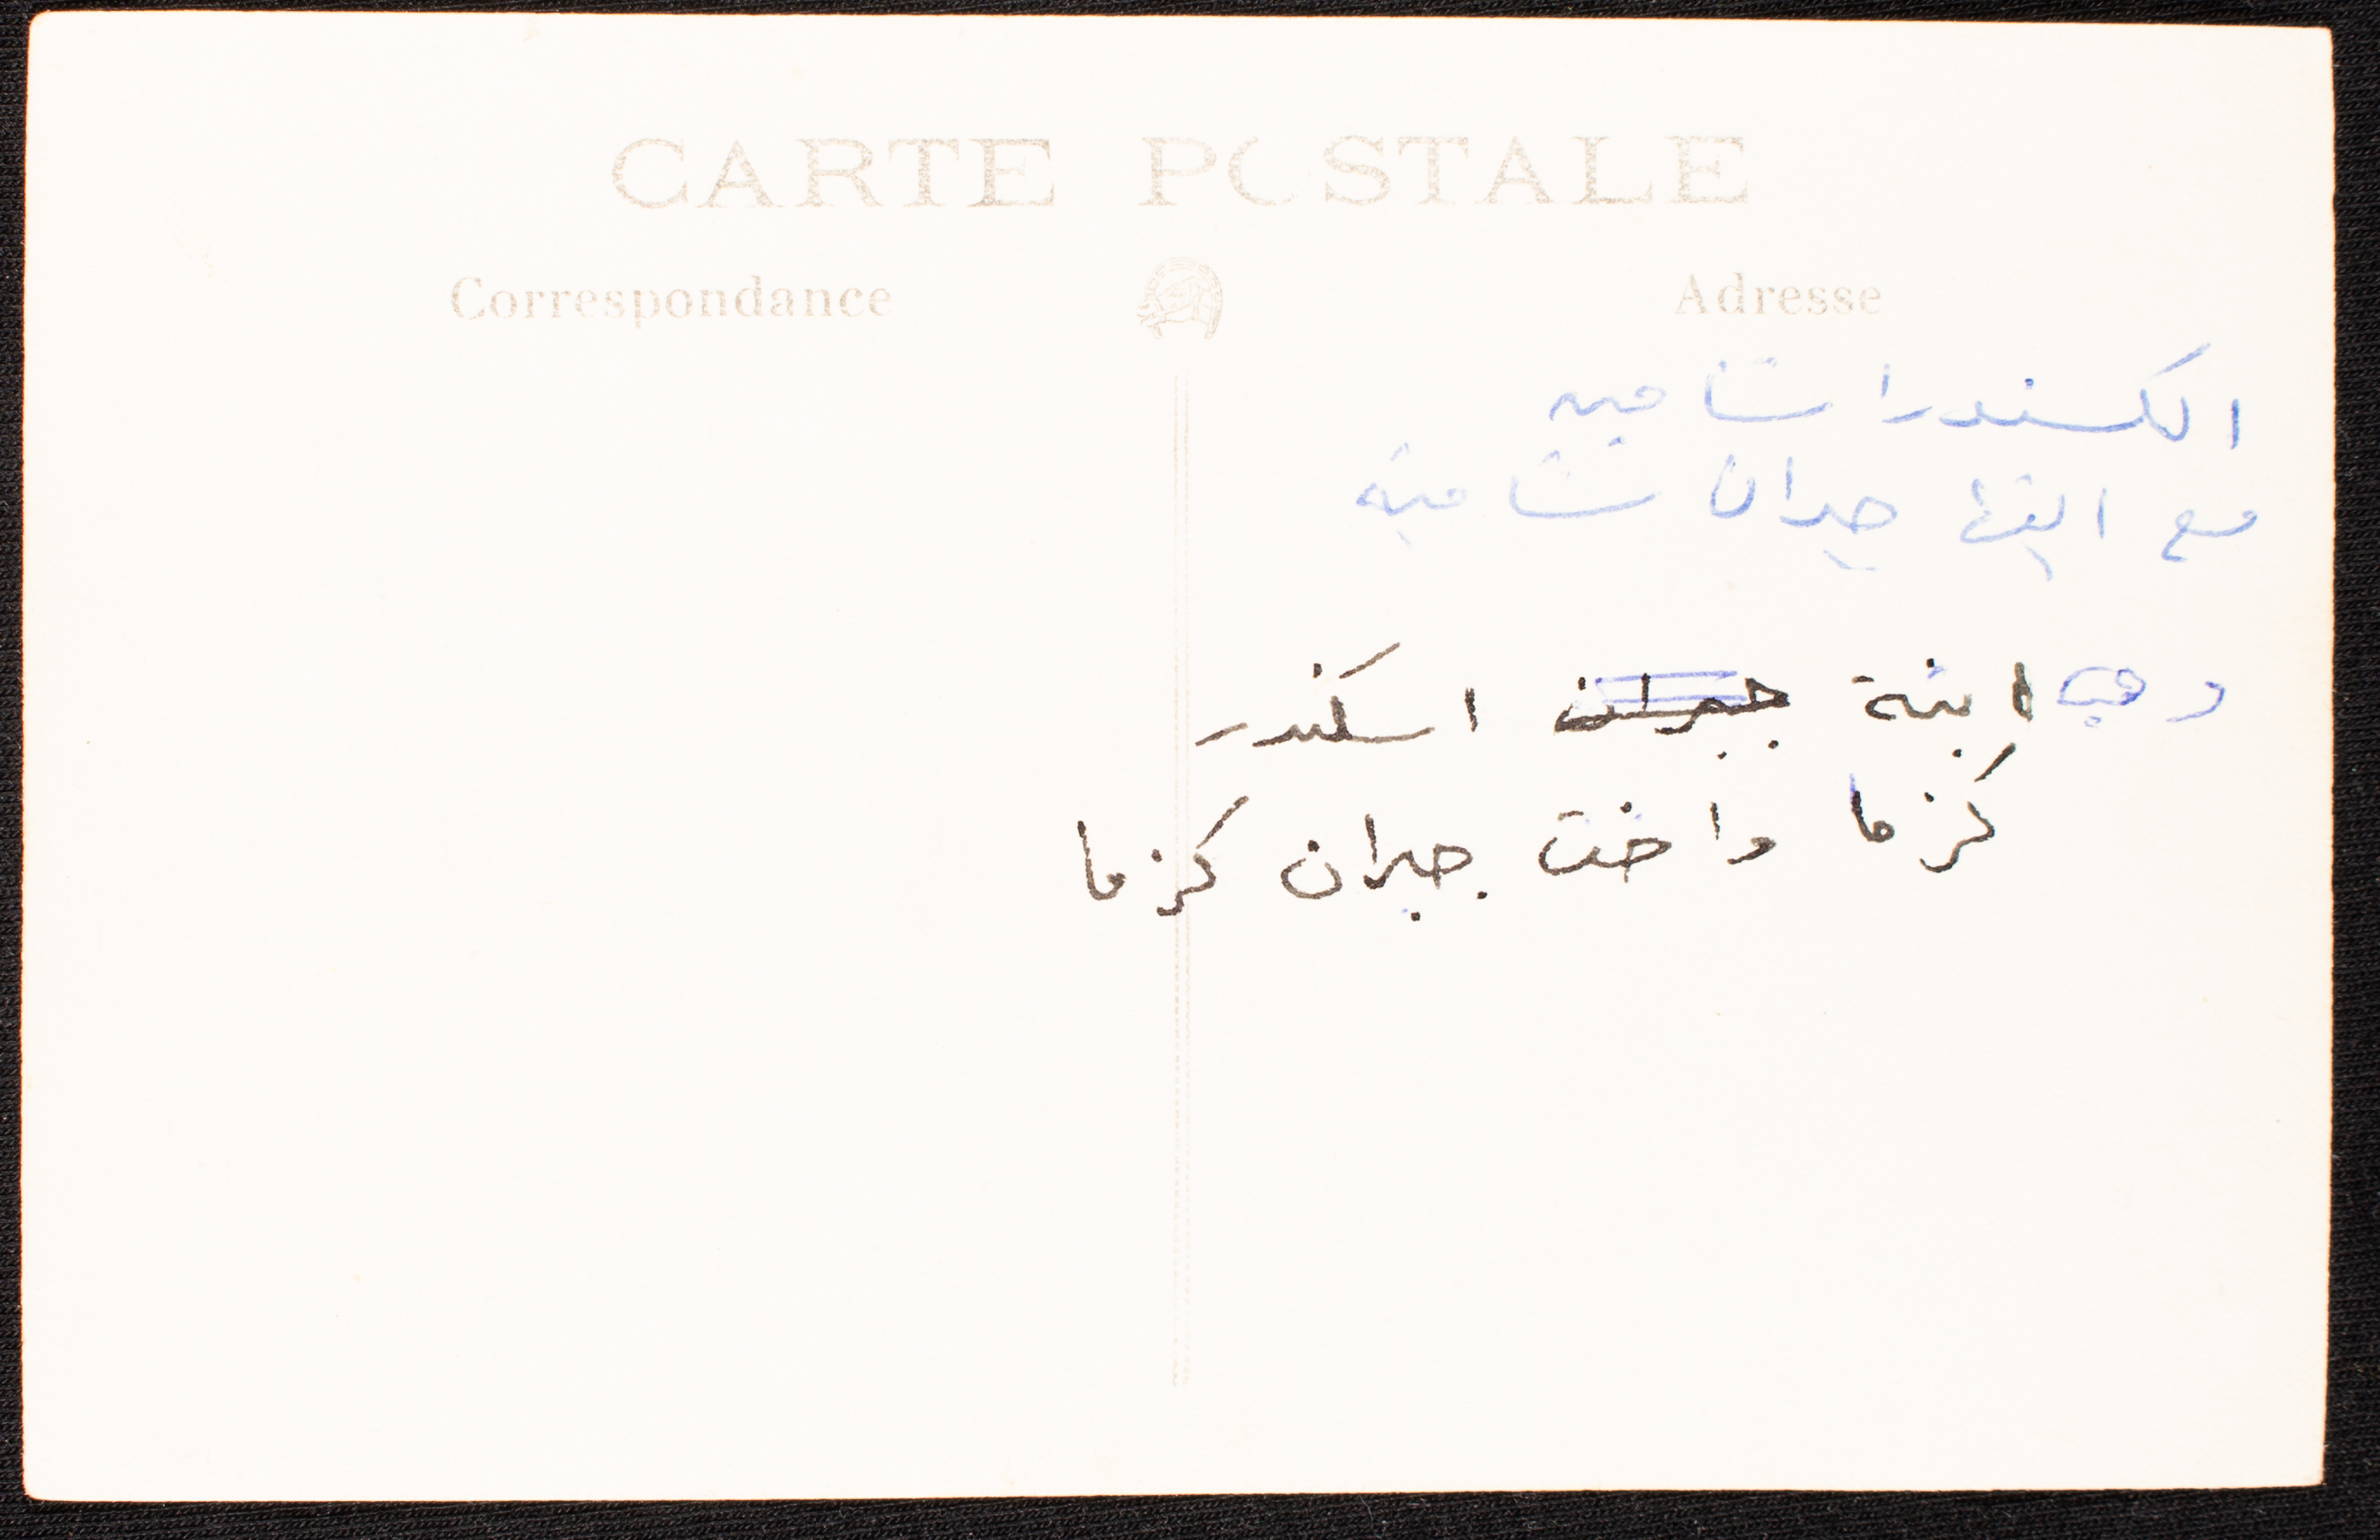 CARTE POSTALE
Correspondance
Adresse
الكسندرا شاميه
مع ابنها جبران شامية
وهي ابنة جبران اسكندر
كزما واخت جبران كزما